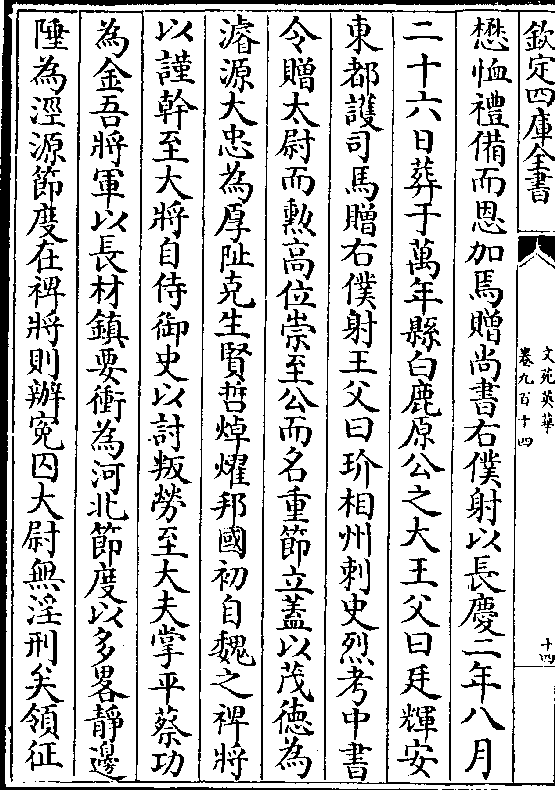 欽定四庫全書
文苑英華
卷九百十四
十四
懋恤禮備而恩加焉贈尚書右僕射以長慶二年八月
二十六日葬于萬年縣白鹿原公之大王父曰廷輝安
東都護司馬贈右僕射王父曰玠相州刺史烈考中書
令贈太尉而勲高位崇至公而名重節立蓋以茂徳為
濬源大忠為厚阯克生賢哲焯燿邦國初自魏之裨將
以謹幹至大將自侍御史以討叛勞至大夫掌平蔡功
為金吾將軍以長材鎮要衝為河北節度以多畧靜邊
陲為涇源節度在裨將則辦寃囚大尉無淫刑矣領征